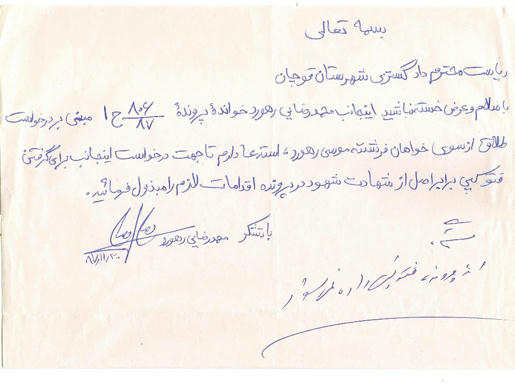 بسمه تعالی
ریاست محترم دادگستری شهرستان قوچان
با سلام و عرض خسته نباشید اینجانب محمدرضایی رهورد خواندهٔ پروندهٔ ۸۰۶/۸۷ ح ۱ مبنی بر درخواست
طلاق از سوی خواهان فرشته موسی رهورد، استدعا دارم تا جهت درخواست اینجانب برای گرفتن
فتوکپی برابر اصل از شهادت شهود در پرونده اقدامات لازم را مبذول فرمائید.
با تشکر محمدرضایی رهورد
از پرونده فتوکپی داده نمی‌شود